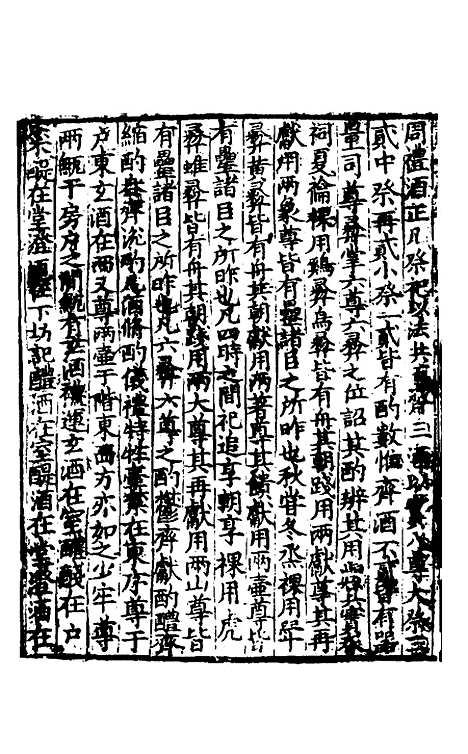 周禮酒正凡祭祀以法共五齊三酒以實八尊大祭三
貳中祭再貳小祭一貳皆有酌數惟齊酒不貳皆有器
量司尊彝掌六尊六彝之位詔其酌辨其用與其實春
祠夏禴祼用鷄彝鳥彝皆有舟其朝踐用兩獻尊其再
獻用兩象尊皆有罍諸臣之所昨也秋嘗冬烝祼用斝
彝黄彝皆有舟其朝獻用兩著尊其饋獻用兩壷尊皆
有罍諸臣之所昨也凡四時之間祀追享朝享祼用虎
彝蜼彝皆有舟其朝踐用兩大尊其再獻用兩山尊皆
有罍諸臣之所昨也凡六彝六尊之酌鬱齊獻酌醴齊
縮酌盎齊涚酌凡酒脩酌儀禮特牲 在東序尊于
户東玄酒在西又尊兩壷于階東西方亦如之少牢尊
兩甒于房户之間甒有玄酒禮運玄酒在室醴醆在户
粢醍在堂澄酒在下坊記醴酒在室醍酒在堂澄酒在